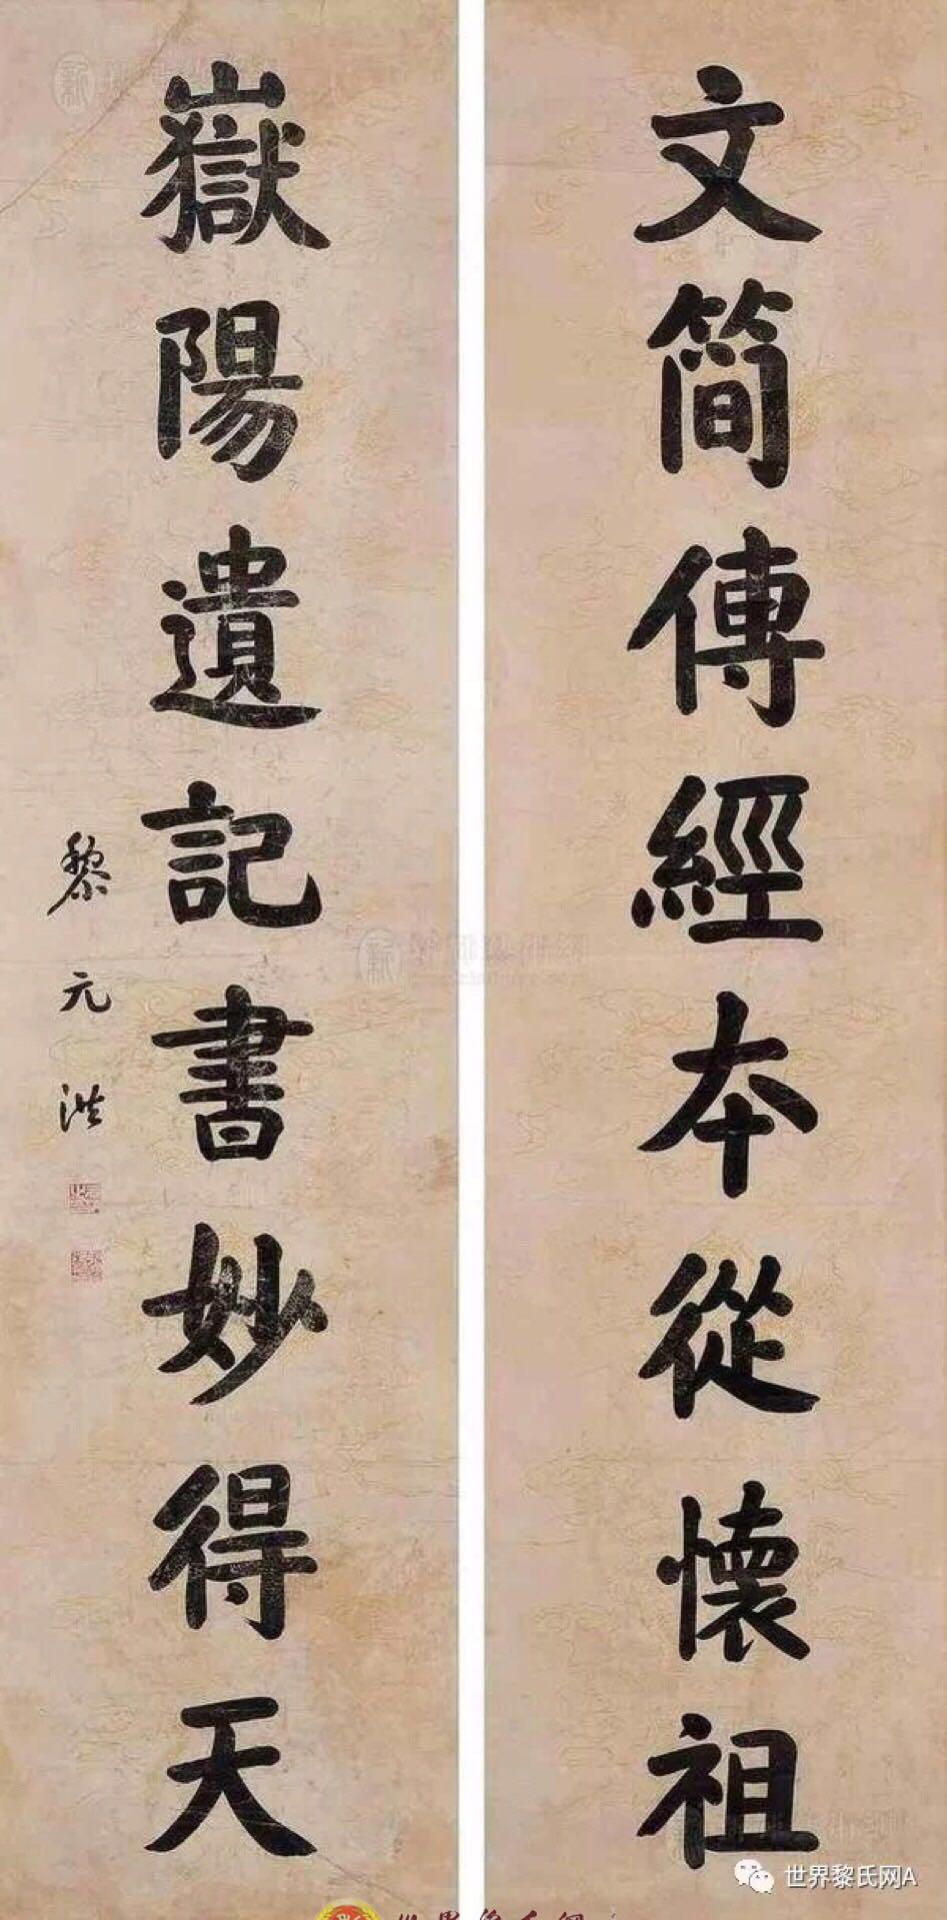 文簡傳經本從懷祖
嶽陽遺記書妙得天
黎元洪
世界黎氏网A